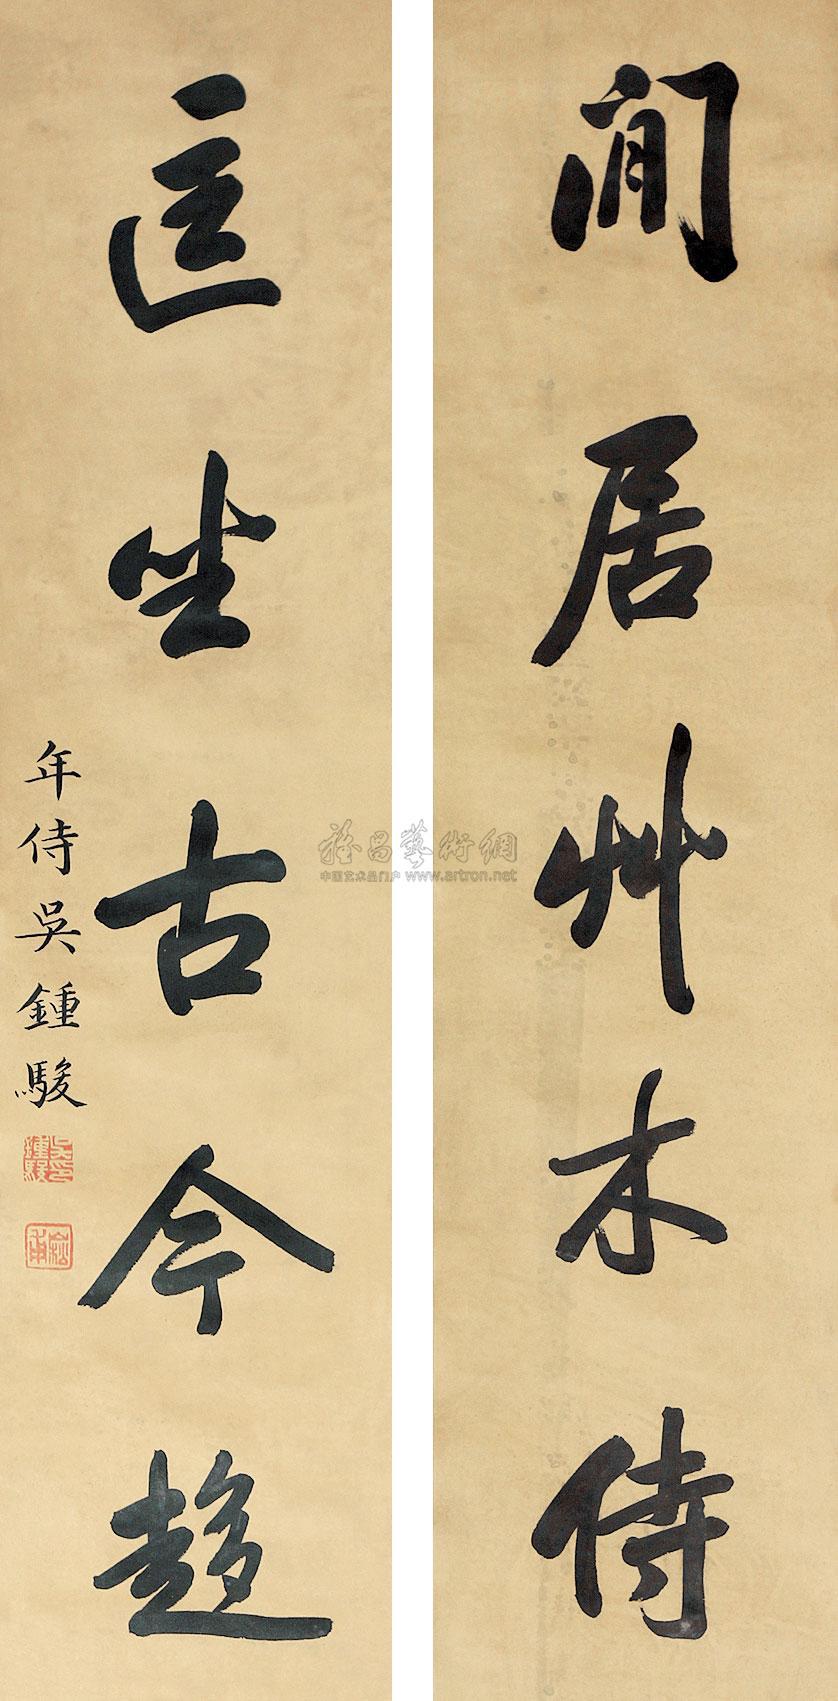 閒居艸木侍
匡坐古今趍
年侍吳鍾駿
吳印鍾駿
崧甫
雅昌藝術網
中国艺术品门户 www.artron.net